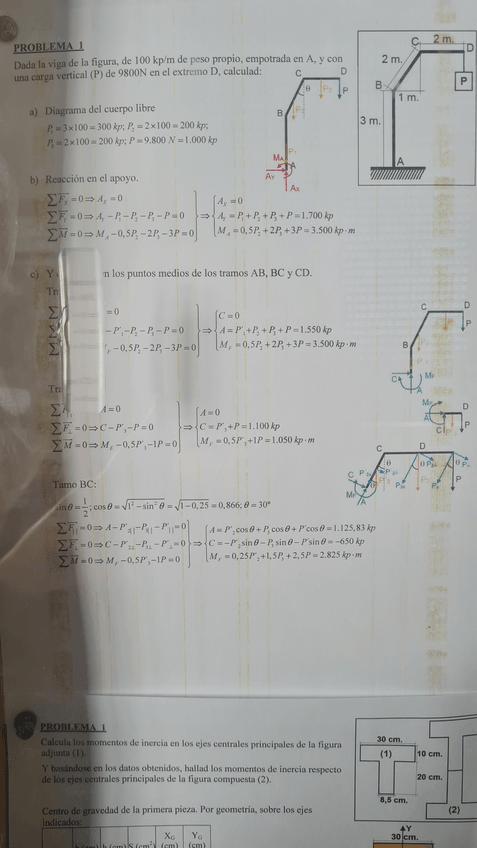 PROBLEMA 1
Dada la viga de la figura, de 100 kp/m de peso propio, empotrada en A, y con
una carga vertical (P) de 9800N en el extremo D, calculad:
a) Diagrama del cuerpo libre
P₁=3×100=300 kp; P₂=2×100=200 kp;
P₃=2×100=200 kp; P=9.800 N=1.000 kp
b) Reacción en el apoyo.
∑Fₓ=0⇒Aₓ=0
∑Fᵧ=0⇒Aᵧ−P₁−P₂−P₃−P=0
∑M=0⇒M_A−0,5P₂−2P₃−3P=0
⇒
Aₓ=0
Aᵧ=P₁+P₂+P₃+P=1.700 kp
M_A=0,5P₂+2P₃+3P=3.500 kp·m
c) Y n los puntos medios de los tramos AB, BC y CD.
Tr
=0
−P'₁−P₂−P₃−P=0
−0,5P₂−2P₃−3P=0
⇒
C=0
A=P'₁+P₂+P₃+P=1.550 kp
M_F=0,5P₂+2P₃+3P=3.500 kp·m
Tr
A=0
=0⇒C−P'₃−P=0
∑M=0⇒M_F−0,5P'₃−1P=0
⇒
A=0
C=P'₃+P=1.100 kp
M_F=0,5P'₃+1P=1.050 kp·m
Tamo BC:
sinθ=1/2; cosθ=√1²−sin²θ=√1−0,25=0,866; θ=30°
=0⇒A−P'₂||−P₃||−P'||=0
=0⇒C−P'₂⊥−P₃⊥−P'⊥=0
∑M=0⇒M_F−0,5P'₃−1P=0
⇒
A=P'₂cosθ+P₃cosθ+P'cosθ=1.125,83 kp
C=−P'₂sinθ−P₃sinθ−P'sinθ=−650 kp
M_F=0,25P'₂+1,5P₃+2,5P=2.825 kp·m
C 2 m. D
2 m.
B P
1 m.
3 m.
A
C D
θ P₃ P
B
P₂
P₁
M_A
A
Aᵧ Aₓ
C D
P
B
C M_F
M_F D
C P
C D
θ
P
C
M_F
PROBLEMA 1
Calcula los momentos de inercia en los ejes centrales principales de la figura
adjunta (1).
Y basándose en los datos obtenidos, hallad los momentos de inercia respecto
de los ejes centrales principales de la figura compuesta (2).
Centro de gravedad de la primera pieza. Por geometría, sobre los ejes
indicados:
30 cm.
(1) 10 cm.
20 cm.
8,5 cm. (2)
Y
30 cm.
h (cm) S (cm²) X_G (cm) Y_G (cm)